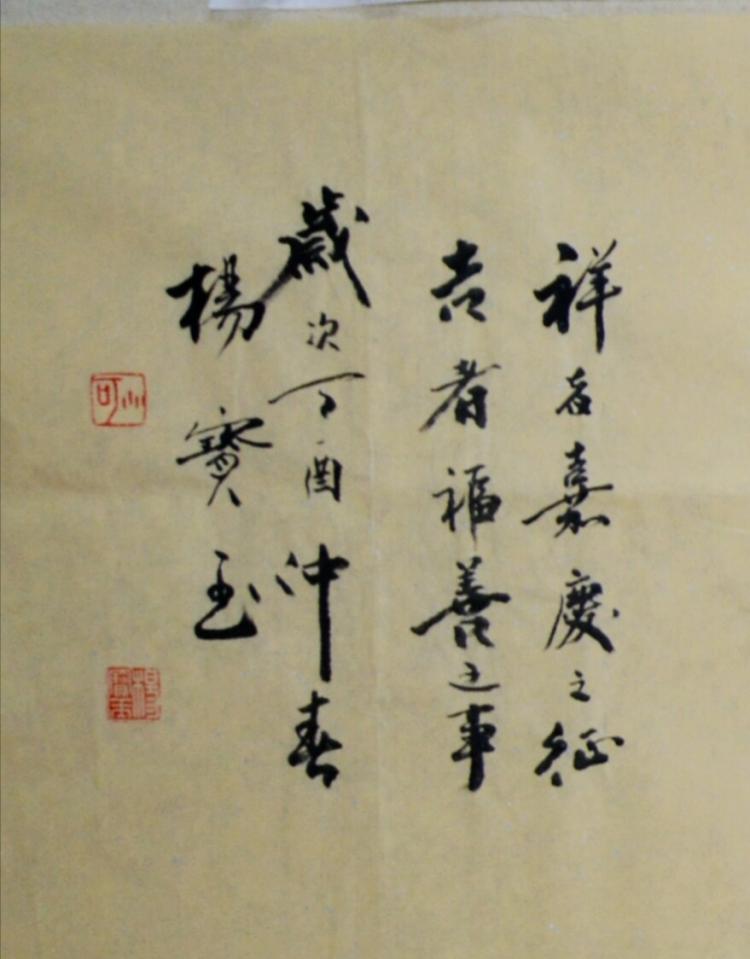 祥者嘉慶之征
吉者福善之事
歲次丁酉沖春
楊寶玉
可
楊寶玉